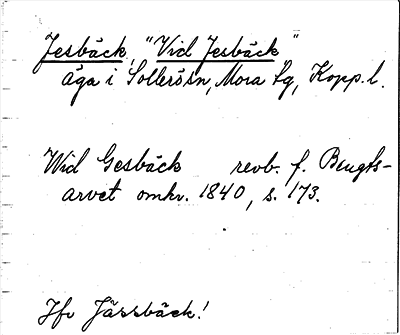 Jesbäck, "Vid Jesbäck"
äga i Sollerösn, Mora tg, Kopp. l.
Wid Gesbäck revb. f. Bengts-
arvet omkr. 1840, s. 173.
Jfr Jässbäck!